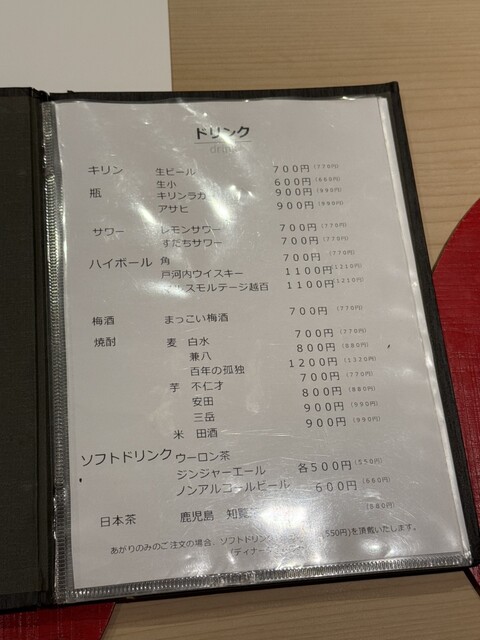 ドリンク
drink
キリン 生ビール 700円(770円)
生小 600円(660円)
瓶 キリンラガ 900円(990円)
アサヒ 900円(990円)
サワー レモンサワー 700円(770円)
すだちサワー 700円(770円)
ハイボール 角 700円(770円)
戸河内ウイスキー 1100円(1210円)
スモルテージ越百 1100円(1210円)
梅酒 まっこい梅酒 700円(770円)
焼酎 麦 白水 700円(770円)
兼八 800円(880円)
百年の孤独 1200円(1320円)
芋 不仁才 700円(770円)
安田 800円(880円)
三岳 900円(990円)
米 田酒 900円(990円)
ソフトドリンク ウーロン茶
ジンジャーエール 各500円(550円)
ノンアルコールビール 600円(660円)
日本茶 鹿児島 知覧 (880円)
あがりのみのご注文の場合、ソフトドリン 550円)を頂戴いたします。
(ディナー